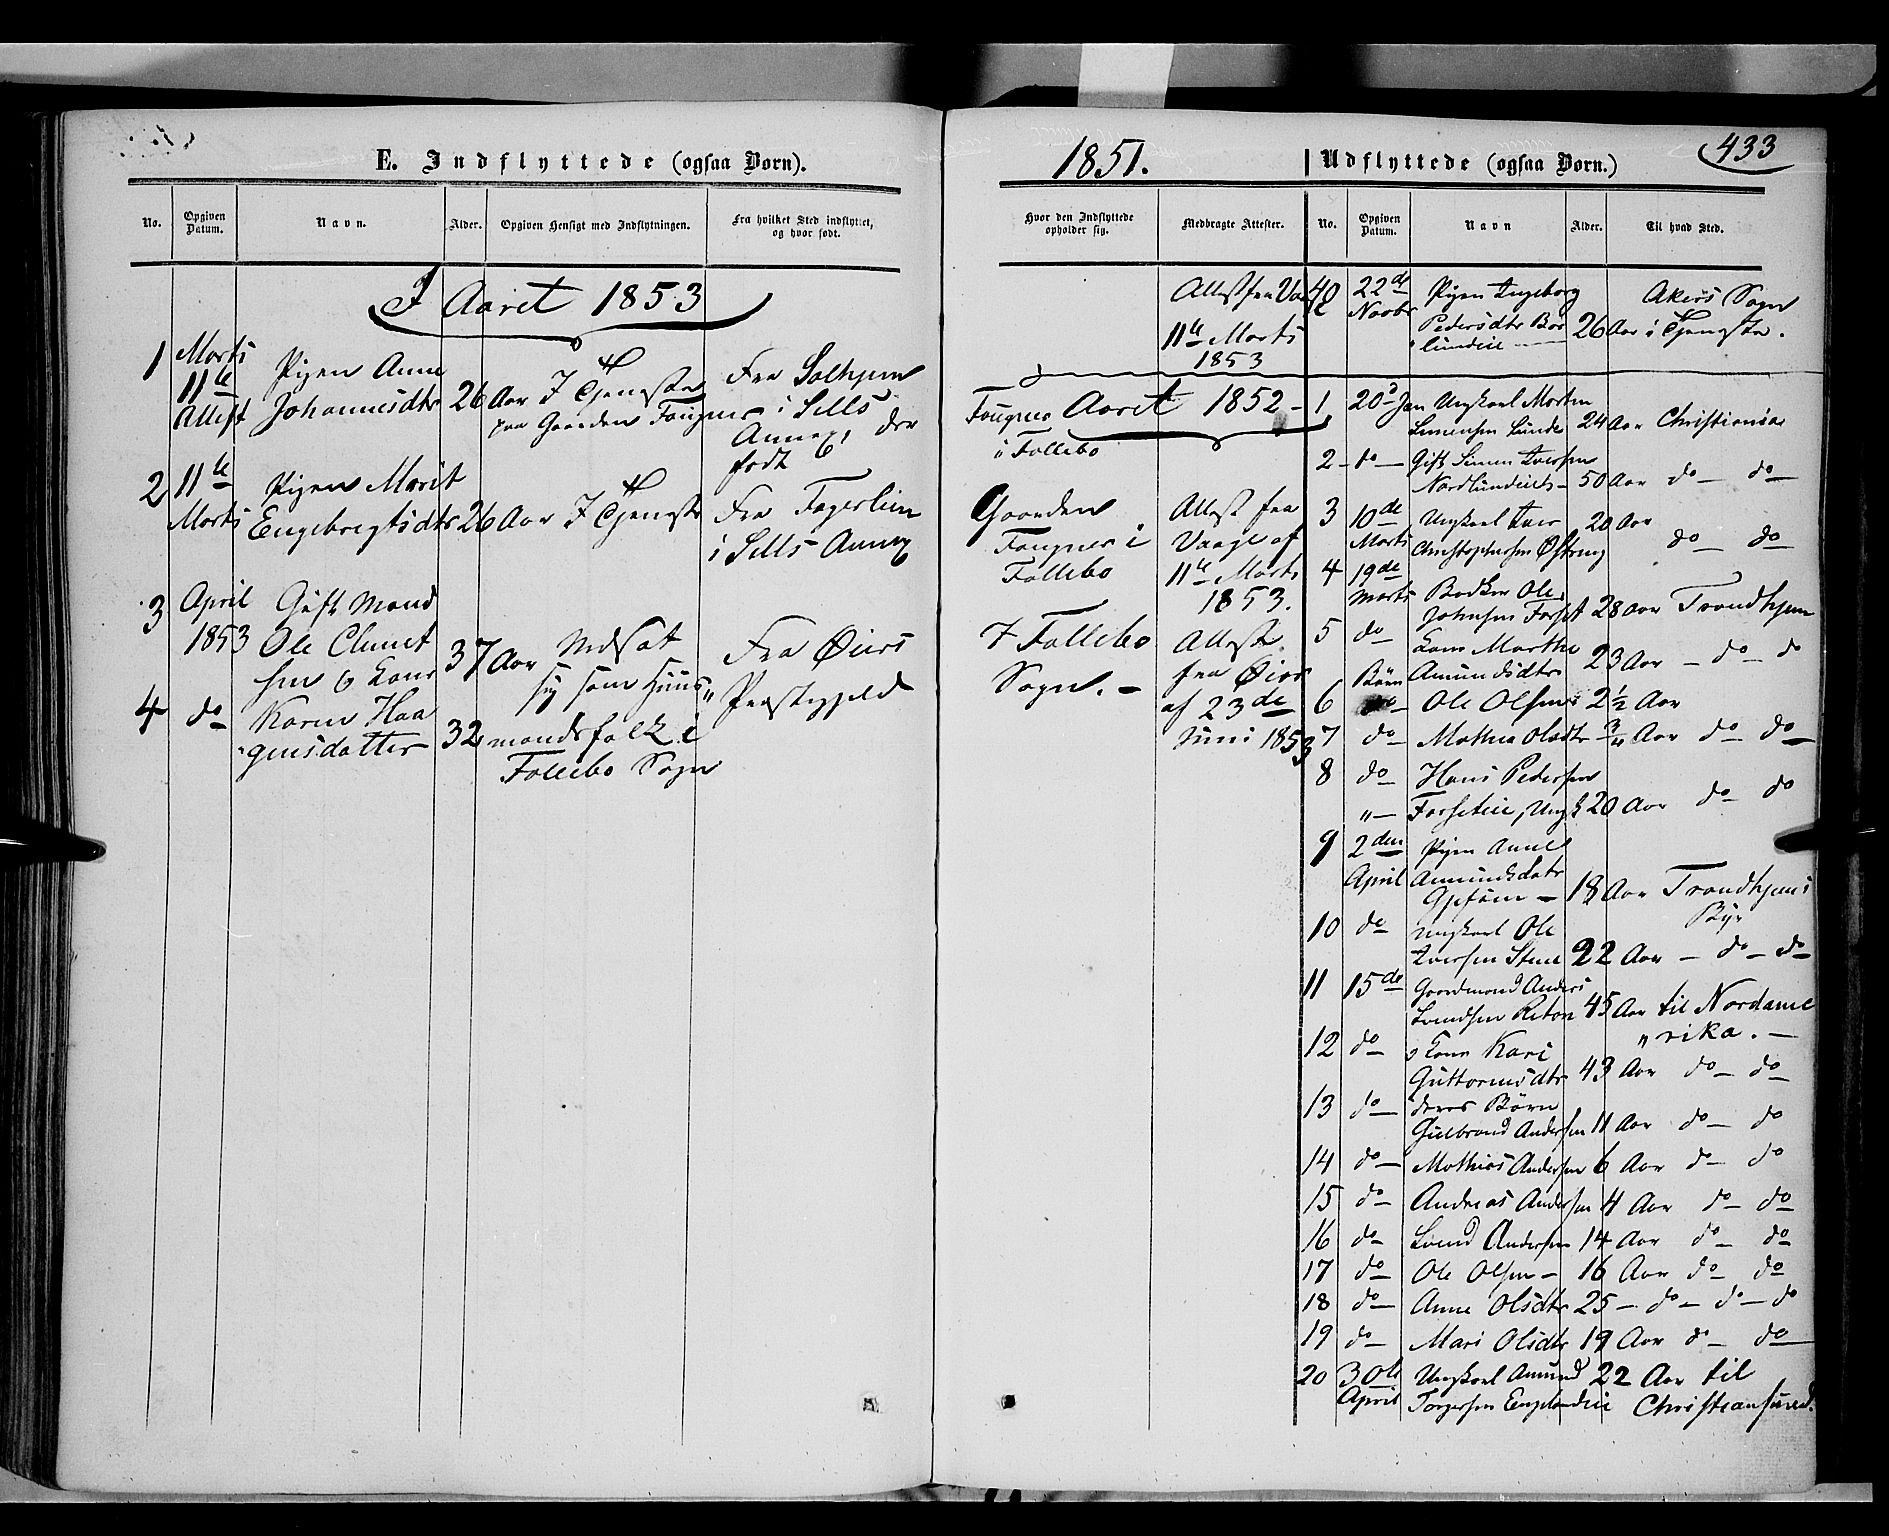 E. Indflyttede (ogsaa Børn).
No.
Opgiven Datum.
Navn.
Alder.
Opgiven Hensigt med Indflytningen.
Fra hvilket Sted indflyttet, og hvor født.
I Aaret 1853
1 Marts Pigen Anne Fra Solhjem
11te Johannesdtr 26 Aar I Tjeneste i Sells
Attest paa Gaarden Fougner Annex, der
født
2 11te Pigen Marit
Marts Engebregtsdtr 26 Aar I Tjeneste Fra Fagerlien
i Sells Annex
3 April Gift Mand
1853 Ole Clemet 37 Aar Nedsat Fra Øiers
sen & Kone sig som Huus" Præstegjeld
4 do Karen Haa
"gensdatter 32 mandsfolk i
Follebo Sogn
1851.
433
Udflyttede (ogsaa Børn.)
Hvor den Indflyttede opholder sig.
Medbragte Attester.
No.
Opgiven Datum.
Navn
Alder.
Til hvad Sted.
Attest fra
11te Marts
1853
Fougner
i Follebo
Gaarden
Fougner i
Follebo
Attest fra
Vaage af
11te Marts
1853.
I Follebo
Sogn. –
Attest
fra Øier
af 23de
Juni 1853
40 22de Pigen Ingeborg Akers Sogn
Novbr Pedersdtr 26 Aar i Tjeneste.
Aaret 1852 –
1 20de Jan Ungkarl Morten
Simensen Lunde 24 Aar Christiania
2 – do – Gift Simen Iversen
50 Aar do – do –
3 10de Ungkarl Iver 20 Aar
Marts Christophersen do – do
4 19de
Marts Bødker Ole
Johnsen Forset 28 Aar Trondhjem
5 do Kone Marthe
Amundsdtr 23 Aar – do – do
Børn
6 do – Ole Olsen 2½ Aar
7 do – Mathea Olsdtr ¾ Aar do – do –
8 do – Hans Pedersen
" – Forseteie, Ungk 20 Aar do – do
9 2den Pigen Anne
April Amundsdatr
18 Aar Trondhjems
By
10 do Ungkarl Ole
Iversen Stene 22 Aar – do – do –
11 15de Gaardmand Anders
Svendsen 45 Aar til Nordame
"rika. –
12 do & Kone Kari
Guttormsdtr 43 Aar do – do –
13 do – deres Børn
Gulbrand Andersen 11 Aar do – do
14 do – Mathias Andersen 6 Aar do – do
15 do – Andreas Andersen 4 Aar do – do
16 do – Svend Andersen 14 Aar do – do
17 do – Ole Olsen – 16 Aar do – do
18 do – Anne Olsdtr 25 – do – do – do
19 do – Mari Olsdtr 19 Aar do – do
20 30te Ungkarl Amund 22 Aar til
April Torgersen Christiansund.